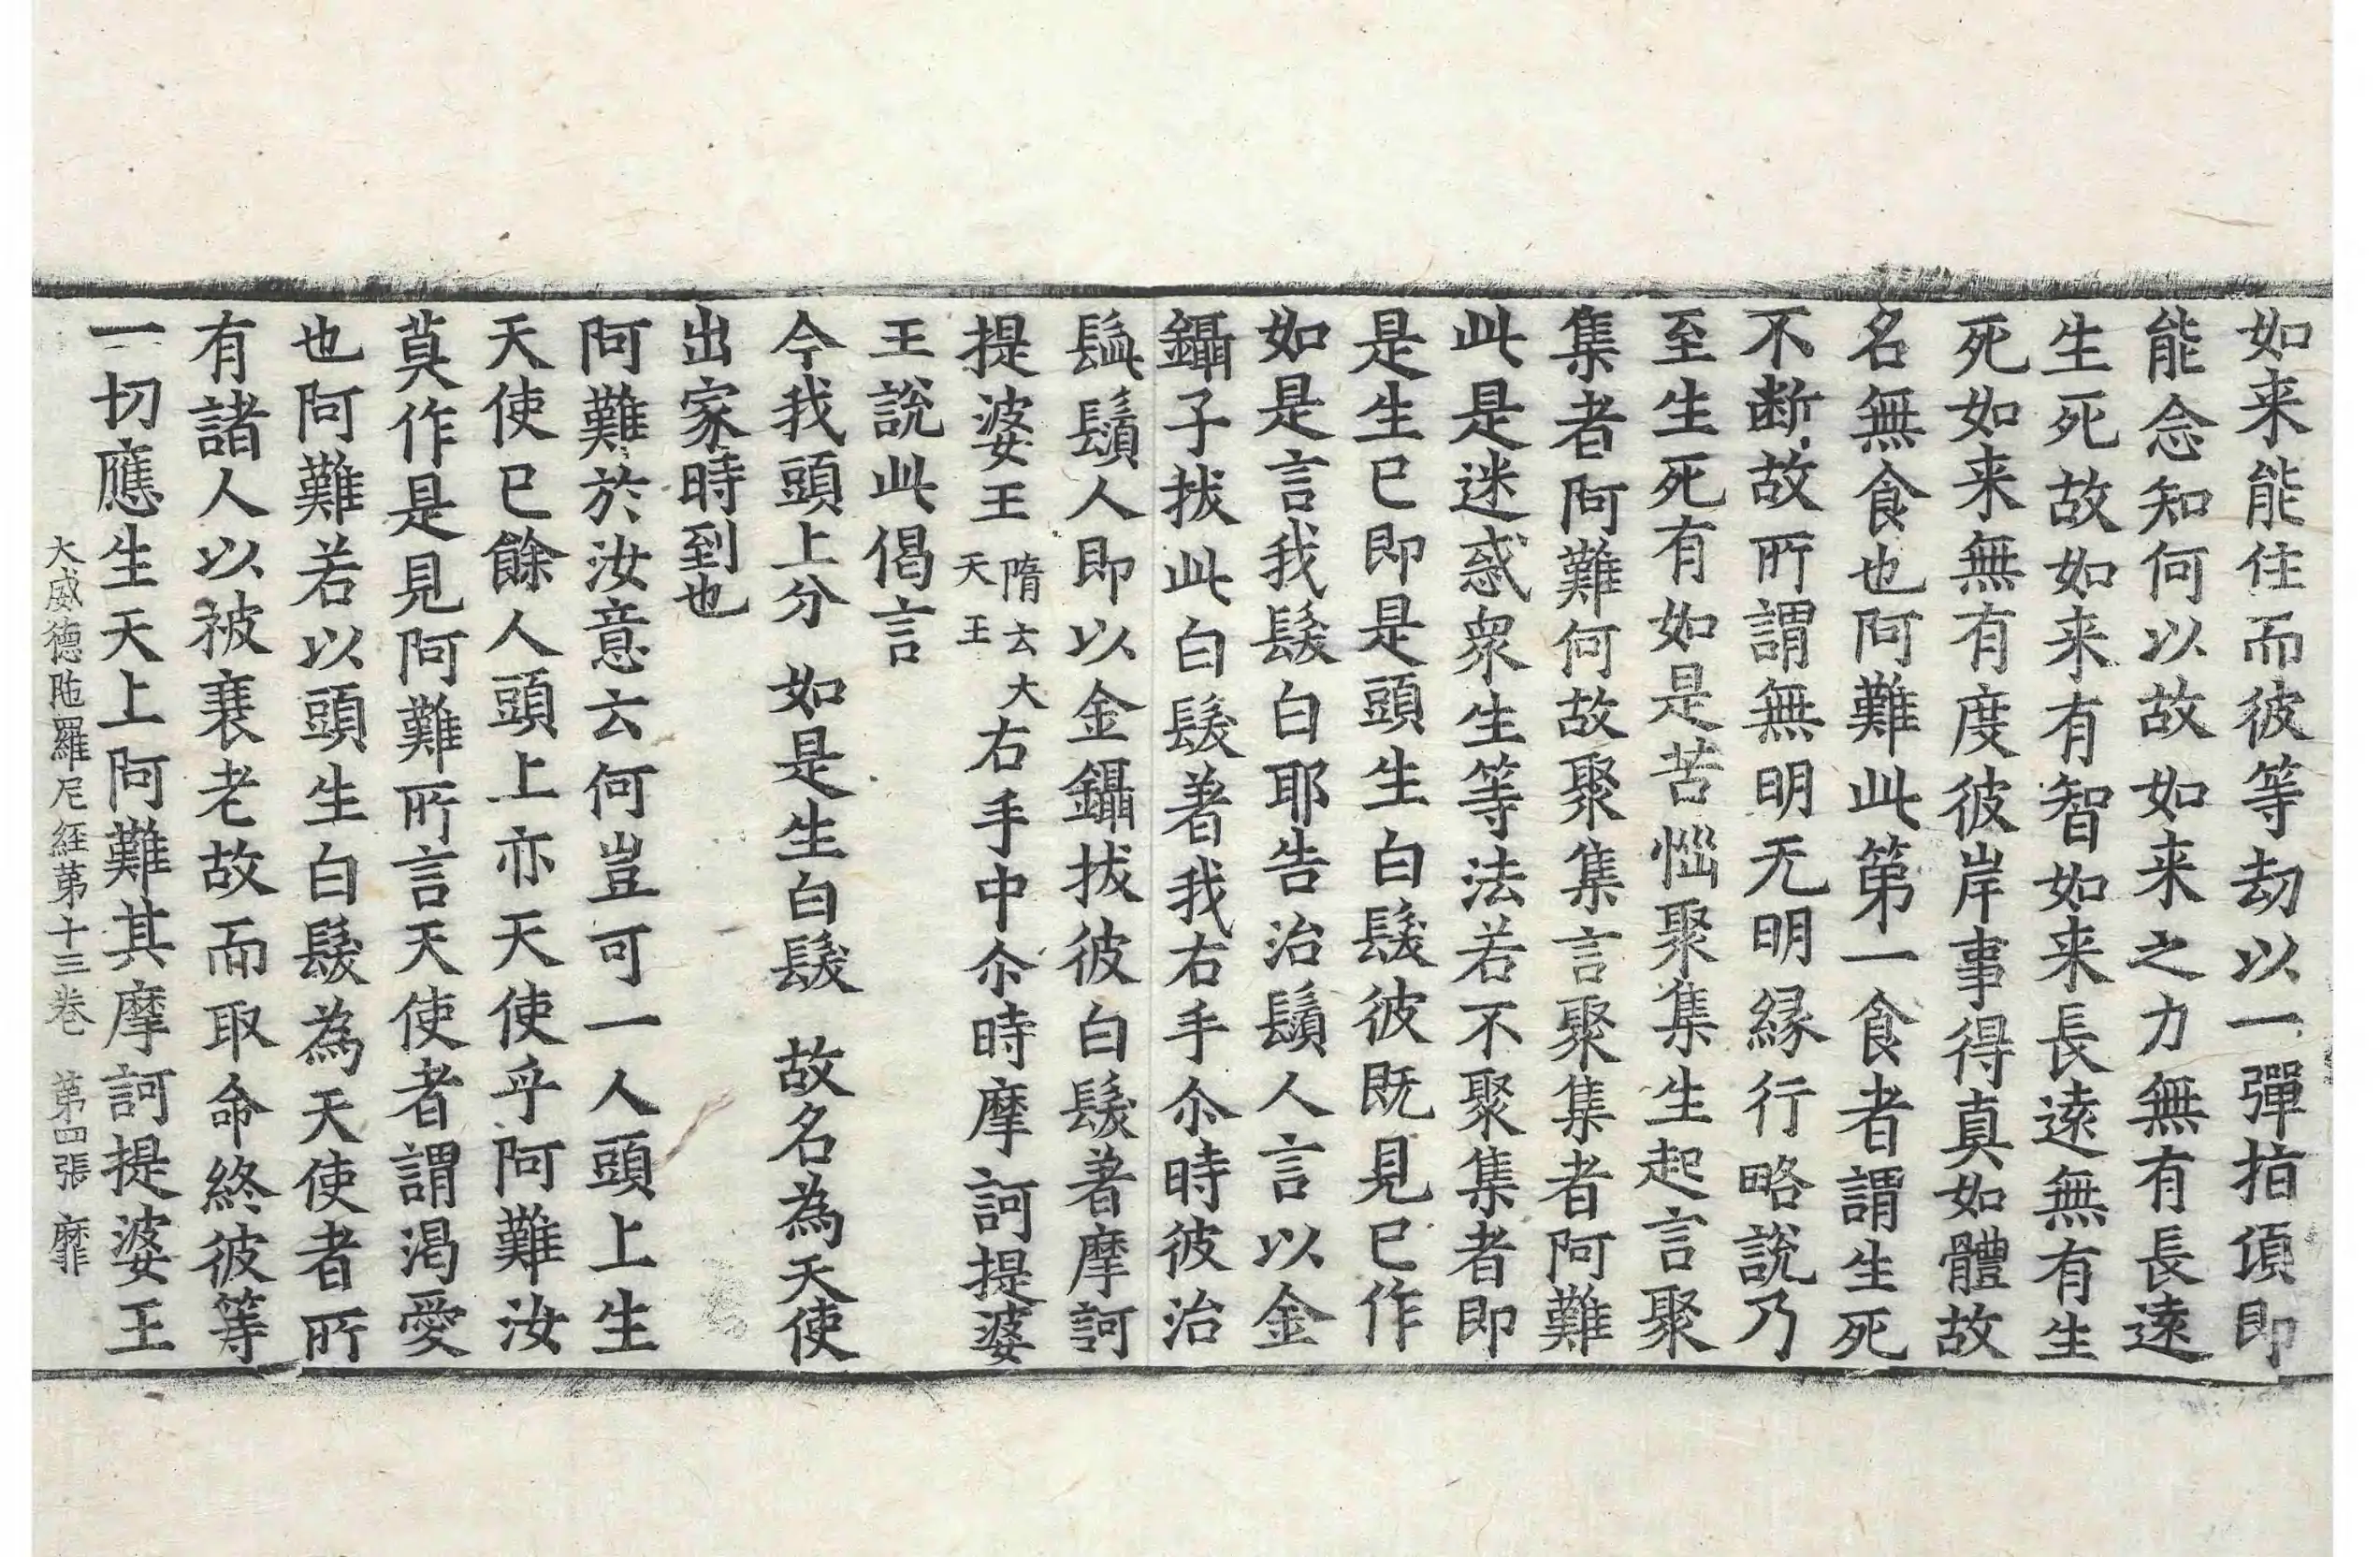 如来能住而彼等劫以一彈指項即
能念知何以故如来之力無有長遠
生死故如来有智如来長遠無有生
死如来無有度彼岸事得真如體故
名無食也阿難此第一食者謂生死
不断故所謂無明无明縁行略說乃
至生死有如是苦惱聚集生起言聚
集者阿難何故聚集言聚集者阿難
此是迷惑衆生等法若不聚集者即
是生已即是頭生白髮彼既見已作
如是言我髮白耶告治鬚人言以金
鑷子拔此白髮著我右手尒時彼治
鬚人即以金鑷拔彼白髮著摩訶
提婆王隋云大天王右手中尒時摩訶提婆
王說此偈言
今我頭上分 如是生白髮 故名為天使
出家時到也
阿難於汝意云何豈可一人頭上生
天使已餘人頭上亦天使乎阿難汝
莫作是見阿難所言天使者謂渴愛
也阿難若以頭生白髮為天使者所
有諸人以被衰老故而取命終彼等
一切應生天上阿難其摩訶提婆王
大威德陁羅尼経第十三卷 第四張 靡